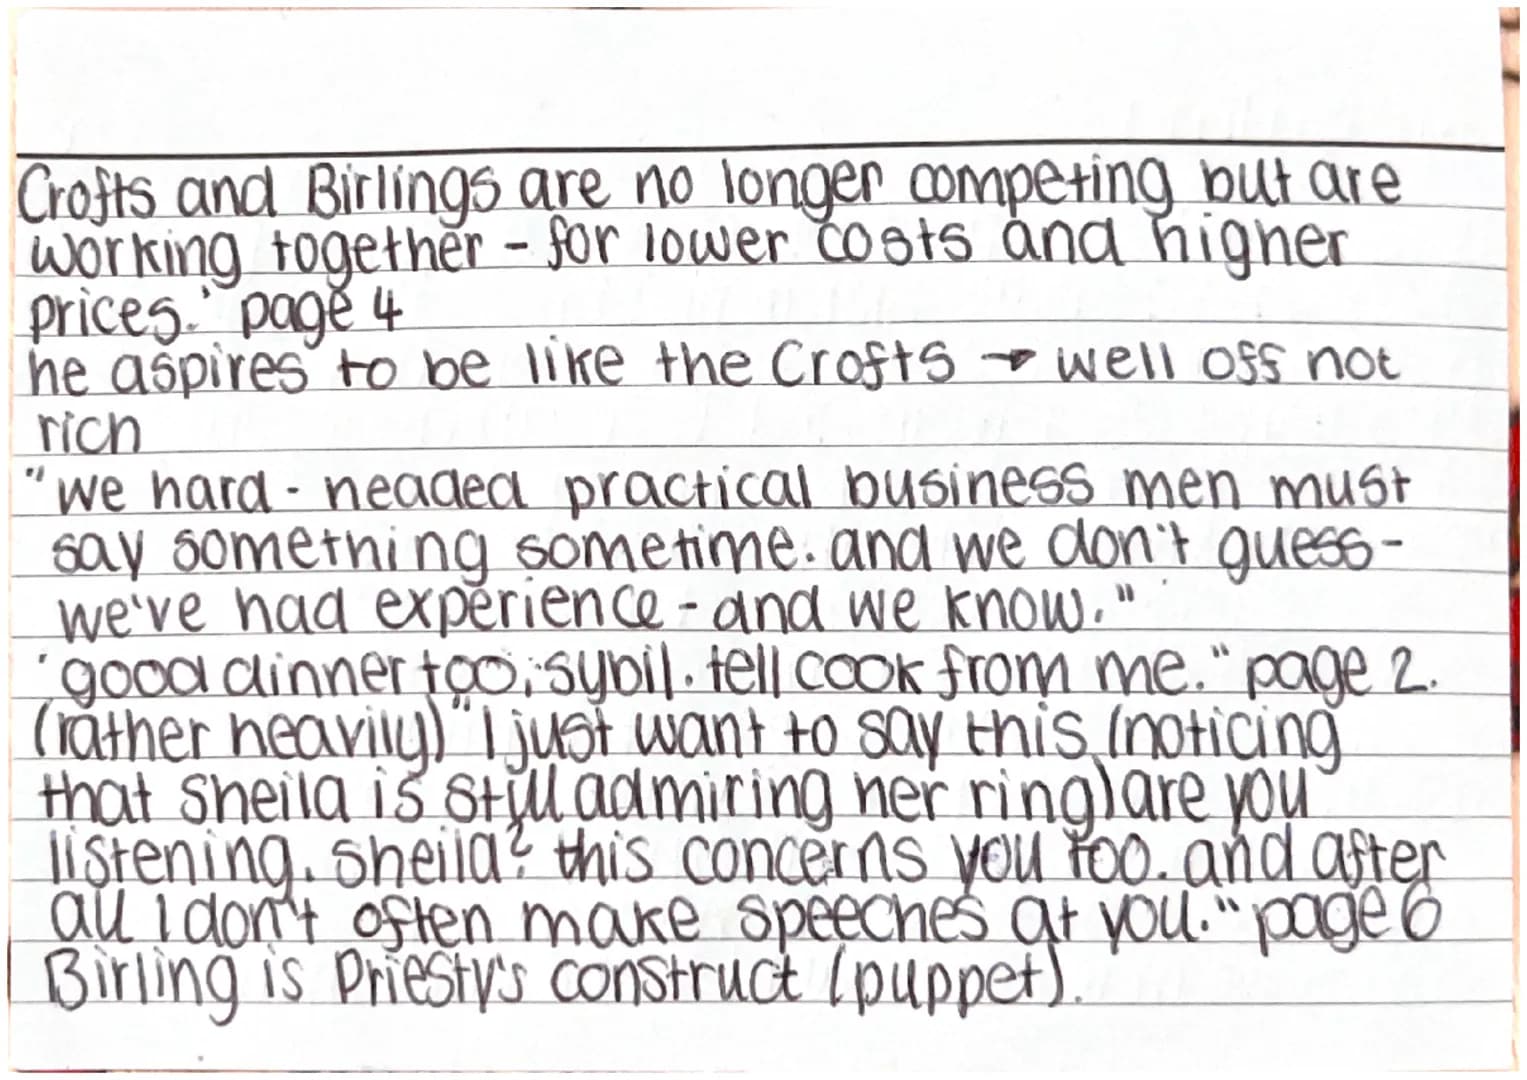 Crofts and Birlings are no longer competing but are
working together - for lower costs and higher
prices.' page 4
he aspires to be like the Crofts → well off not
rich
"we hard-headed practical business men must
say something sometime. and we don't guess -
we've had experience - and we know."
'good dinner too, sybil. tell cook from me." page 2.
(rather heavily) "I just want to say this (noticing
that Sheila is still admiring her ring) are you
listening. Sheila? this concerns you too. and after
all I don't often make speeches at you." page 6
Birling is Priesty's construct (puppet).